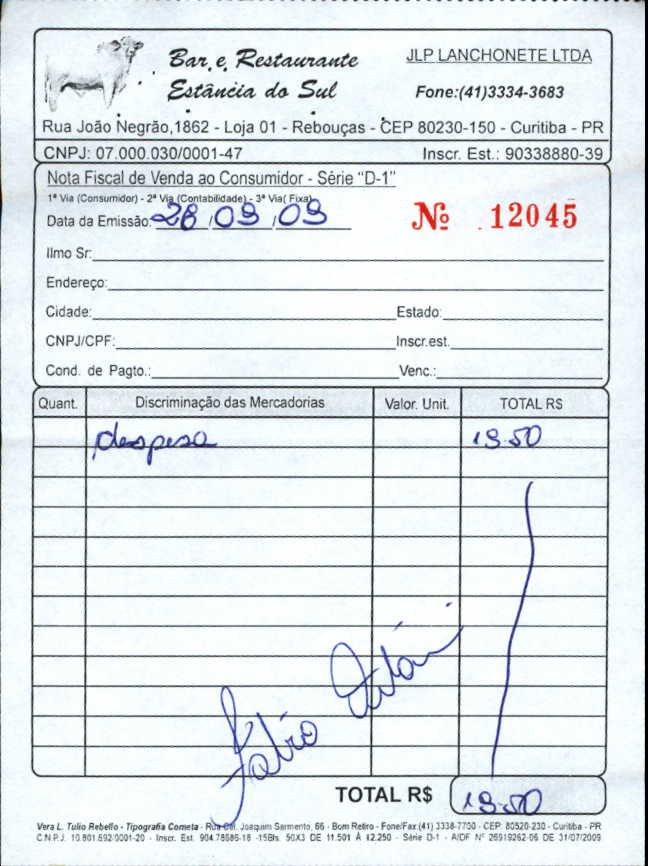 Bar e Restaurante
Estância do Sul
JLP LANCHONETE LTDA
Fone:(41)3334-3683
Rua João Negrão,1862 - Loja 01 - Rebouças - CEP 80230-150 - Curitiba - PR
CNPJ: 07.000.030/0001-47 Inscr. Est.: 90338880-39
Nota Fiscal de Venda ao Consumidor - Série "D-1"
1ª Via (Consumidor) - 2ª Via (Contabilidade) - 3ª Via( Fixa)
Data da Emissão: 28 / 09 / 09 Nº 12045
Ilmo Sr:
Endereço:
Cidade: Estado:
CNPJ/CPF: Inscr.est.
Cond. de Pagto.: Venc.:
Quant. Discriminação das Mercadorias Valor. Unit. TOTAL R$
despesa 19.50
Fabio
TOTAL R$ 19.50
Vera L. Tulio Rebello - Tipografia Cometa - Rua Cel. Joaquim Sarmento, 66 - Bom Retiro - Fone/Fax:(41) 3338-7700 - CEP: 80520-230 - Curitiba - PR
C.N.P.J. 10.801.692/0001-20 - Inscr. Est. 904.78686-18 -15Bls. 50X3 DE 11.501 À 12.250 - Série D-1 - AIDF Nº 26919262-06 DE 31/07/2009